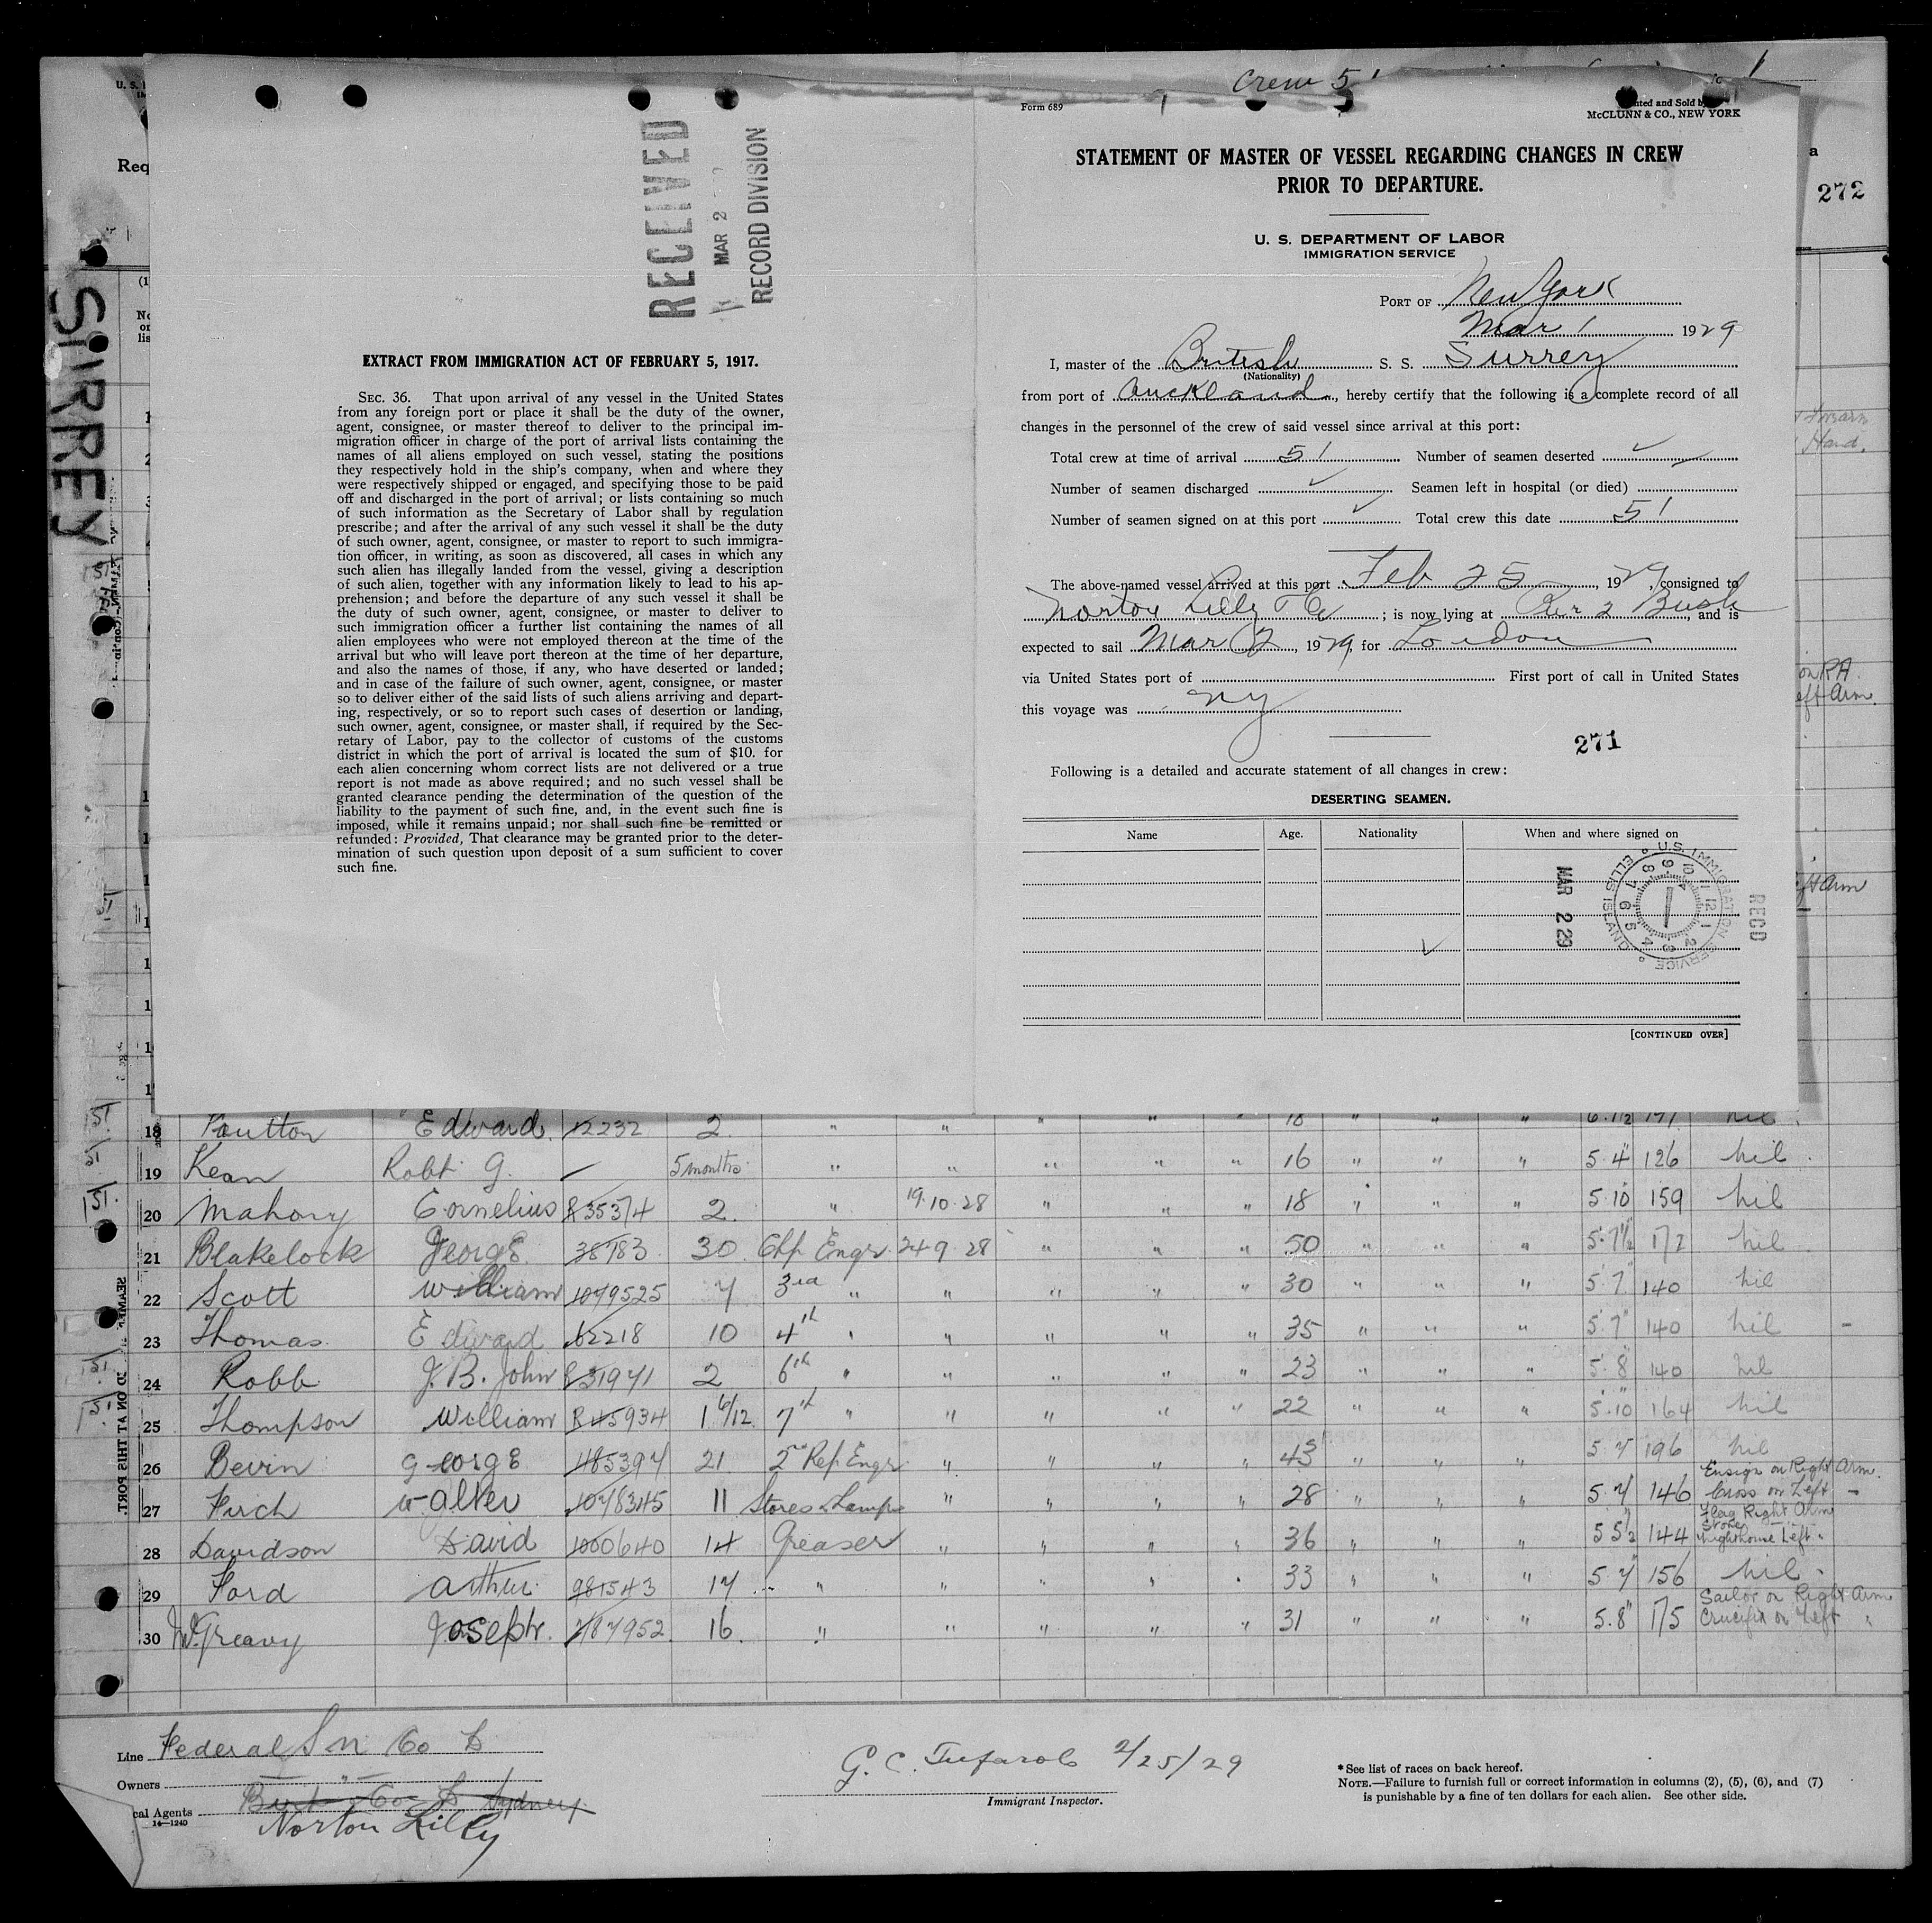 Crew 51
RECEIVED
MAR 2
RECORD DIVISION
EXTRACT FROM IMMIGRATION ACT OF FEBRUARY 5, 1917.
SEC. 36. That upon arrival of any vessel in the United States
from any foreign port or place it shall be the duty of the owner,
agent, consignee, or master thereof to deliver to the principal im-
migration officer in charge of the port of arrival lists containing the
names of all aliens employed on such vessel, stating the positions
they respectively hold in the ship's company, when and where they
were respectively shipped or engaged, and specifying those to be paid
off and discharged in the port of arrival; or lists containing so much
of such information as the Secretary of Labor shall by regulation
prescribe; and after the arrival of any such vessel it shall be the duty
of such owner, agent, consignee, or master to report to such immigra-
tion officer, in writing, as soon as discovered, all cases in which any
such alien has illegally landed from the vessel, giving a description
of such alien, together with any information likely to lead to his ap-
prehension; and before the departure of any such vessel it shall be
the duty of such owner, agent, consignee, or master to deliver to
such immigration officer a further list containing the names of all
alien employees who were not employed thereon at the time of the
arrival but who will leave port thereon at the time of her departure,
and also the names of those, if any, who have deserted or landed;
and in case of the failure of such owner, agent, consignee, or master
so to deliver either of the said lists of such aliens arriving and depart-
ing, respectively, or so to report such cases of desertion or landing,
such owner, agent, consignee, or master shall, if required by the Sec-
retary of Labor, pay to the collector of customs of the customs
district in which the port of arrival is located the sum of $10. for
each alien concerning whom correct lists are not delivered or a true
report is not made as above required; and no such vessel shall be
granted clearance pending the determination of the question of the
liability to the payment of such fine, and, in the event such fine is
imposed, while it remains unpaid; nor shall such fine be remitted or
refunded: Provided, That clearance may be granted prior to the deter-
mination of such question upon deposit of a sum sufficient to cover
such fine.
Form 689
McCLUNN & CO., NEW YORK
STATEMENT OF MASTER OF VESSEL REGARDING CHANGES IN CREW
PRIOR TO DEPARTURE.
U. S. DEPARTMENT OF LABOR
IMMIGRATION SERVICE
PORT OF New York
Mar 1 1929
I, master of the British S. S. Surrey
(Nationality)
from port of Auckland, hereby certify that the following is a complete record of all
changes in the personnel of the crew of said vessel since arrival at this port:
Total crew at time of arrival 51 Number of seamen deserted
Number of seamen discharged Seamen left in hospital (or died)
Number of seamen signed on at this port Total crew this date 51
The above-named vessel arrived at this port Feb 25, 1929, consigned to
Norton Lilly & Co; is now lying at Pier 2 Bush, and is
expected to sail Mar 2, 1929, for London
via United States port of First port of call in United States
this voyage was NY
271
Following is a detailed and accurate statement of all changes in crew:
DESERTING SEAMEN.
Name Age. Nationality When and where signed on
MAR 2 29
U.S. IMMIGRATION SERVICE ELLIS ISLAND
RECD
[CONTINUED OVER]
272
SURREY
18 Edward 12232 2 " " " " " 18 " " " 6.1½ 171 nil
19 Kean Robt G. 5 months " " " " " 16 " " " 5.4 126 nil
20 Mahony Cornelius R35374 2 " 19.10.28 " " " 18 " " " 5.10 159 nil
21 Blakelock George 38783 30 Chf Engr 24 9 28 " " " 50 " " " 5.7½ 172 nil
22 Scott William 1079525 7 3rd " " " " " 30 " " " 5.7 140 nil
23 Thomas Edward 62218 10 4th " " " " " 35 " " " 5.7 140 nil
24 Robb J.B. John R31971 2 6th " " " " " 23 " " " 5.8 140 nil
25 Thompson William R45934 1 6/12 7th " " " " " 22 " " " 5.10 164 nil
26 Bevin George 485397 21 2nd Ref Engr " " " " 43 " " " 5 7 196 nil
27 Firch Walter 1078345 11 Stores & Lamps " " " " 28 " " " 5 7 146 Ensign on Right Arm. Cross on Left
28 Davidson David 1000640 14 Greaser " " " " 36 " " " 5 5½ 144 Flag Right Arm Stoke Lighthouse Left
29 Ford Arthur 981543 17 " " " " " 33 " " " 5 7 156 nil
30 McGreavy Joseph 787952 16 " " " " " 31 " " " 5.8 175 Sailor on Right Arm Crucifix on Left
Line Federal S N Co Ld
Owners " "
cal Agents Birt & Co Ld Sydney
Norton Lilly
14—1240
2/25/29
Immigrant Inspector.
* See list of races on back hereof.
NOTE.—Failure to furnish full or correct information in columns (2), (5), (6), and (7)
is punishable by a fine of ten dollars for each alien. See other side.